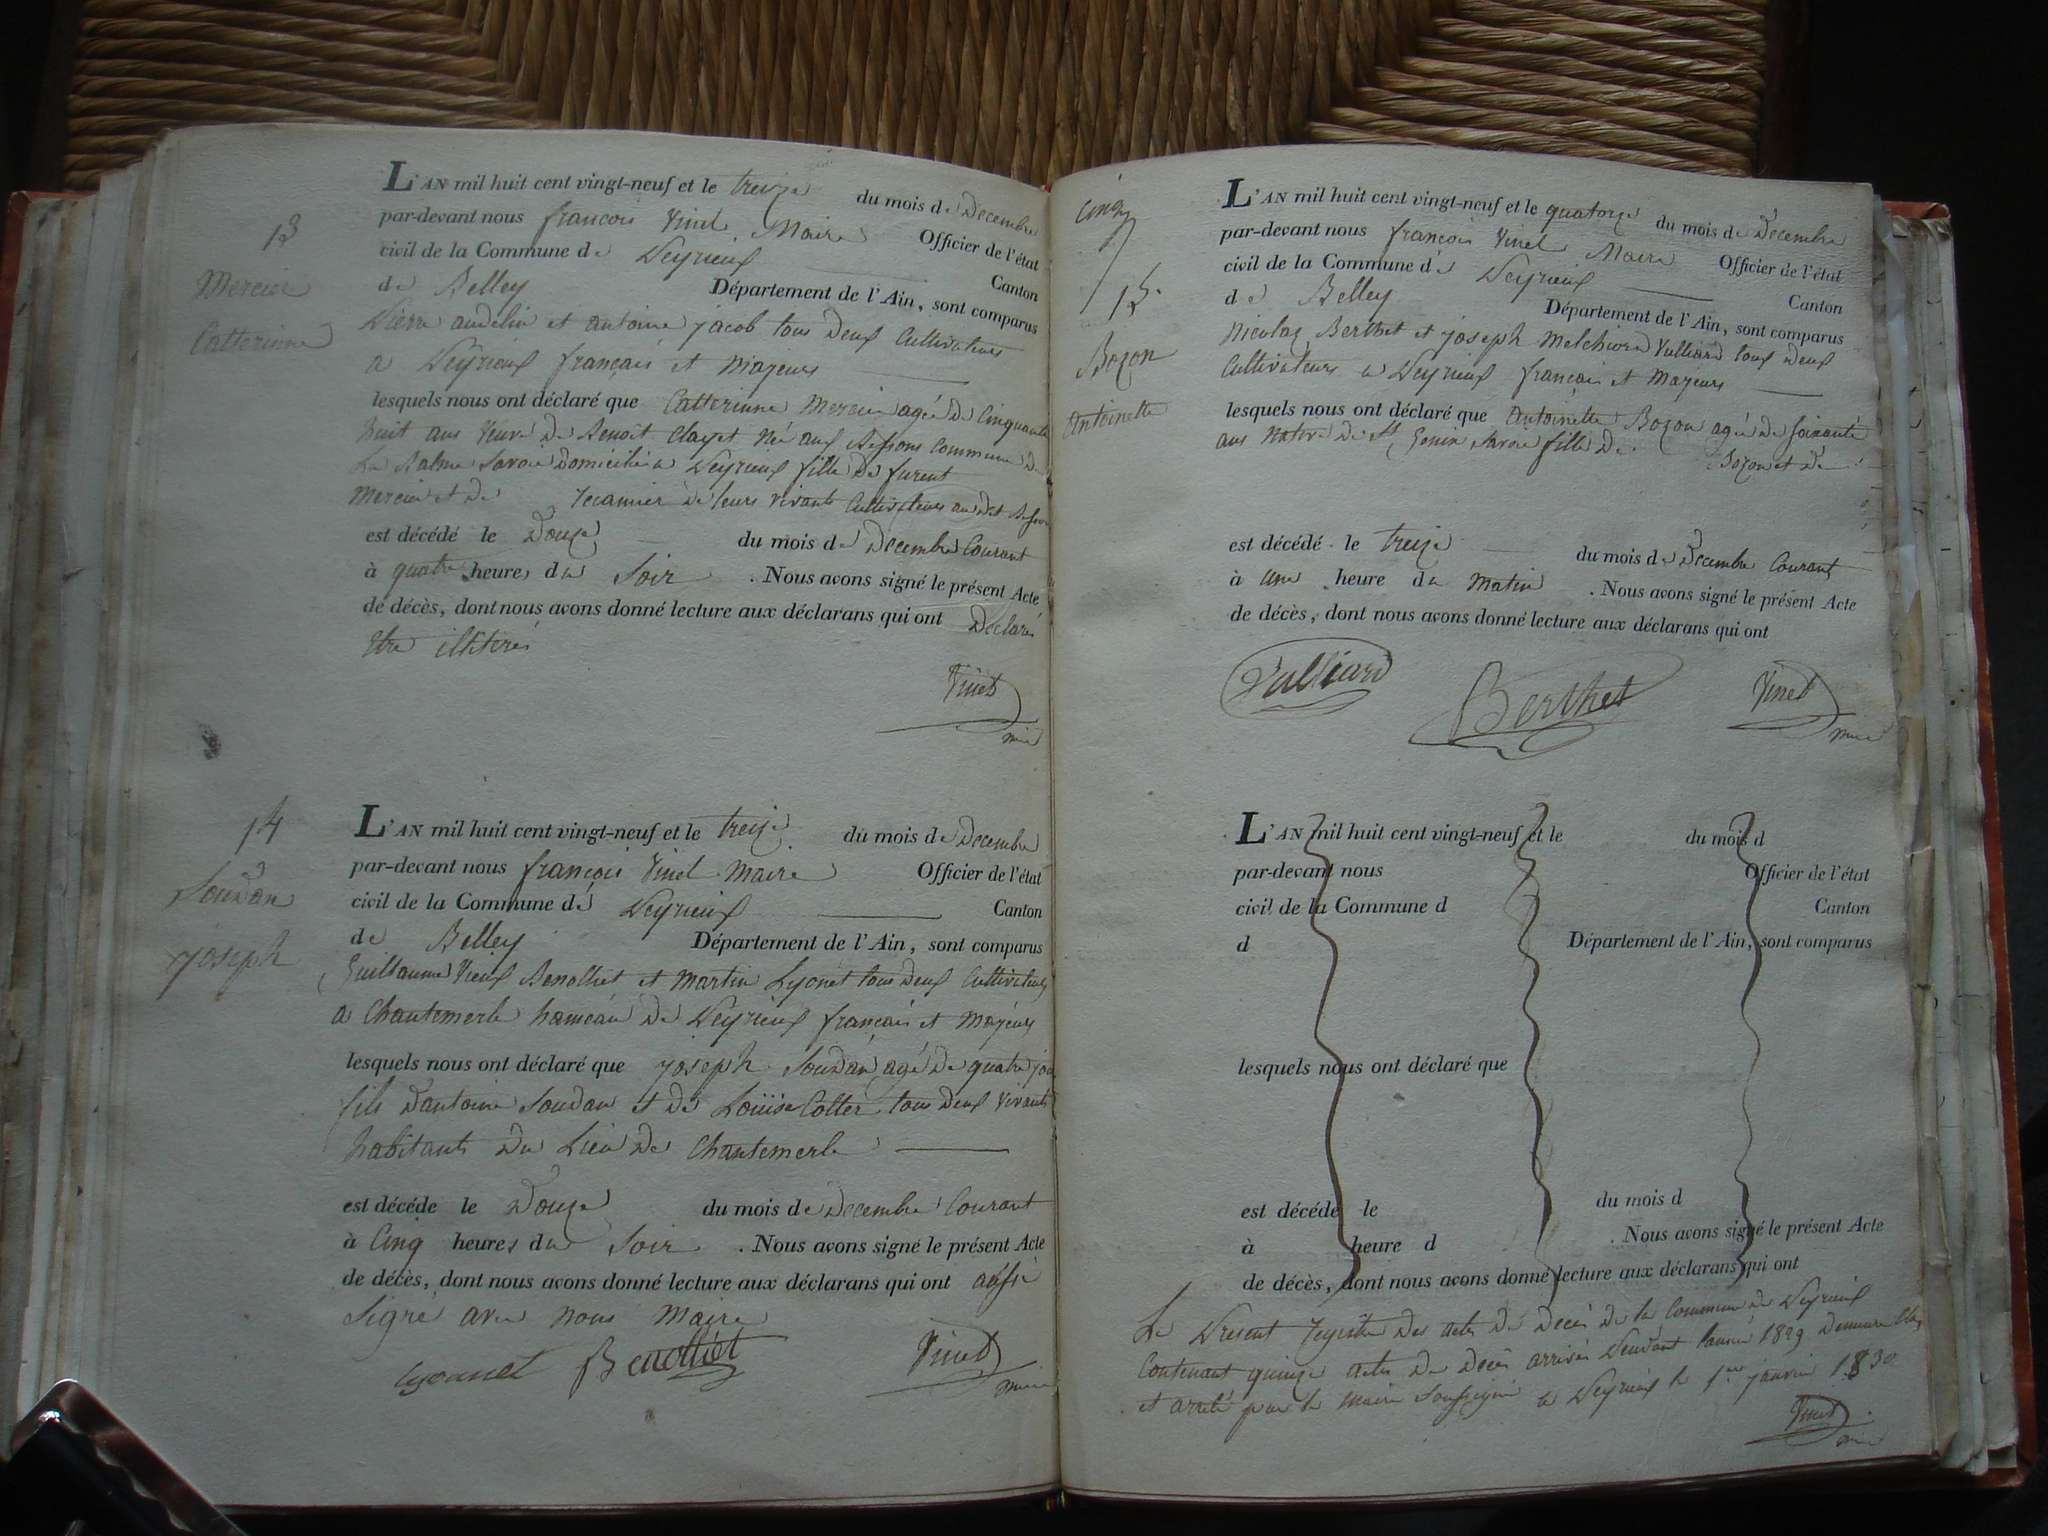 13
Mercier
Catterinne
L'AN mil huit cent vingt-neuf et le treize du mois de Decembre
par-devant nous françois Vinet Maire Officier de l'état
civil de la Commune de Peyrieux Canton
de Belley Département de l'Ain, sont comparus
Pierre andelin et antoine jacob tous deux Cultivateurs
a Peyrieux français et Majeurs
lesquels nous ont déclaré que Catterinne Mercier agée de Cinquante
huit ans Veuve de Benoit Clayet Née aux Bessons Commune de
La Balme Savoie Domiciliée a Peyrieux fille de furent
Mercier et de recamier de leurs vivants Cultivateurs au dit
est décédé le Douze du mois de Decembre Courant
à quatre heures du Soir . Nous avons signé le présent Acte
de décès, dont nous avons donné lecture aux déclarans qui ont Déclaré
Etre illiterés
Vinet
mire
14
Soudan
joseph
L'AN mil huit cent vingt-neuf et le treize du mois de Decembre
par-devant nous françois Vinet Maire Officier de l'état
civil de la Commune de Peyrieux Canton
de Belley Département de l'Ain, sont comparus
Guillaume Vieux Benolliet et Martin Lyonet tous deux Cultivateurs
a Chantemerle hameau de Peyrieux français et Majeurs
lesquels nous ont déclaré que joseph Soudan agé de quatre jou
fils d'antoine Soudan et de Louise Cotter tous deux Vivants
habitants du Lieu de Chantemerle
est décédé le Douze du mois de Decembre Courant
à Cinq heures du Soir . Nous avons signé le présent Acte
de décès, dont nous avons donné lecture aux déclarans qui ont aussi
Signé avec nous Maire
Lyonnet Benolliet Vinet
mire
15.
Bozon
Antoinette
L'AN mil huit cent vingt-neuf et le quatorze du mois de Decembre
par-devant nous françois Vinet Maire Officier de l'état
civil de la Commune de Peyrieux Canton
de Belley Département de l'Ain, sont comparus
Nicolas Berthet et joseph Melchiord Vulliard tous deux
Cultivateurs a Peyrieux français et Majeurs
lesquels nous ont déclaré que Antoinette Bozon agé de soixante
ans Native de St Genin Savoie fille de Bozon et de
est décédé le treize du mois de Decembre Courant
à une heure du Matin . Nous avons signé le présent Acte
de décès, dont nous avons donné lecture aux déclarans qui ont
Vulliard Berthet Vinet
mire
L'AN mil huit cent vingt-neuf et le du mois d
par-devant nous Officier de l'état
civil de la Commune d Canton
d Département de l'Ain, sont comparus
lesquels nous ont déclaré que
est décédé le du mois d
à heure d . Nous avons signé le présent Acte
de décès, dont nous avons donné lecture aux déclarans qui ont
Le Present registre des actes de Decès de la Commune de Peyrieux
Contenant quinze actes de decès arrivés Pendant l'année 1829 demeure Clos
et arreté par le Maire Soussigné a Peyrieux le 1er janvier 1830
Vinet
mire